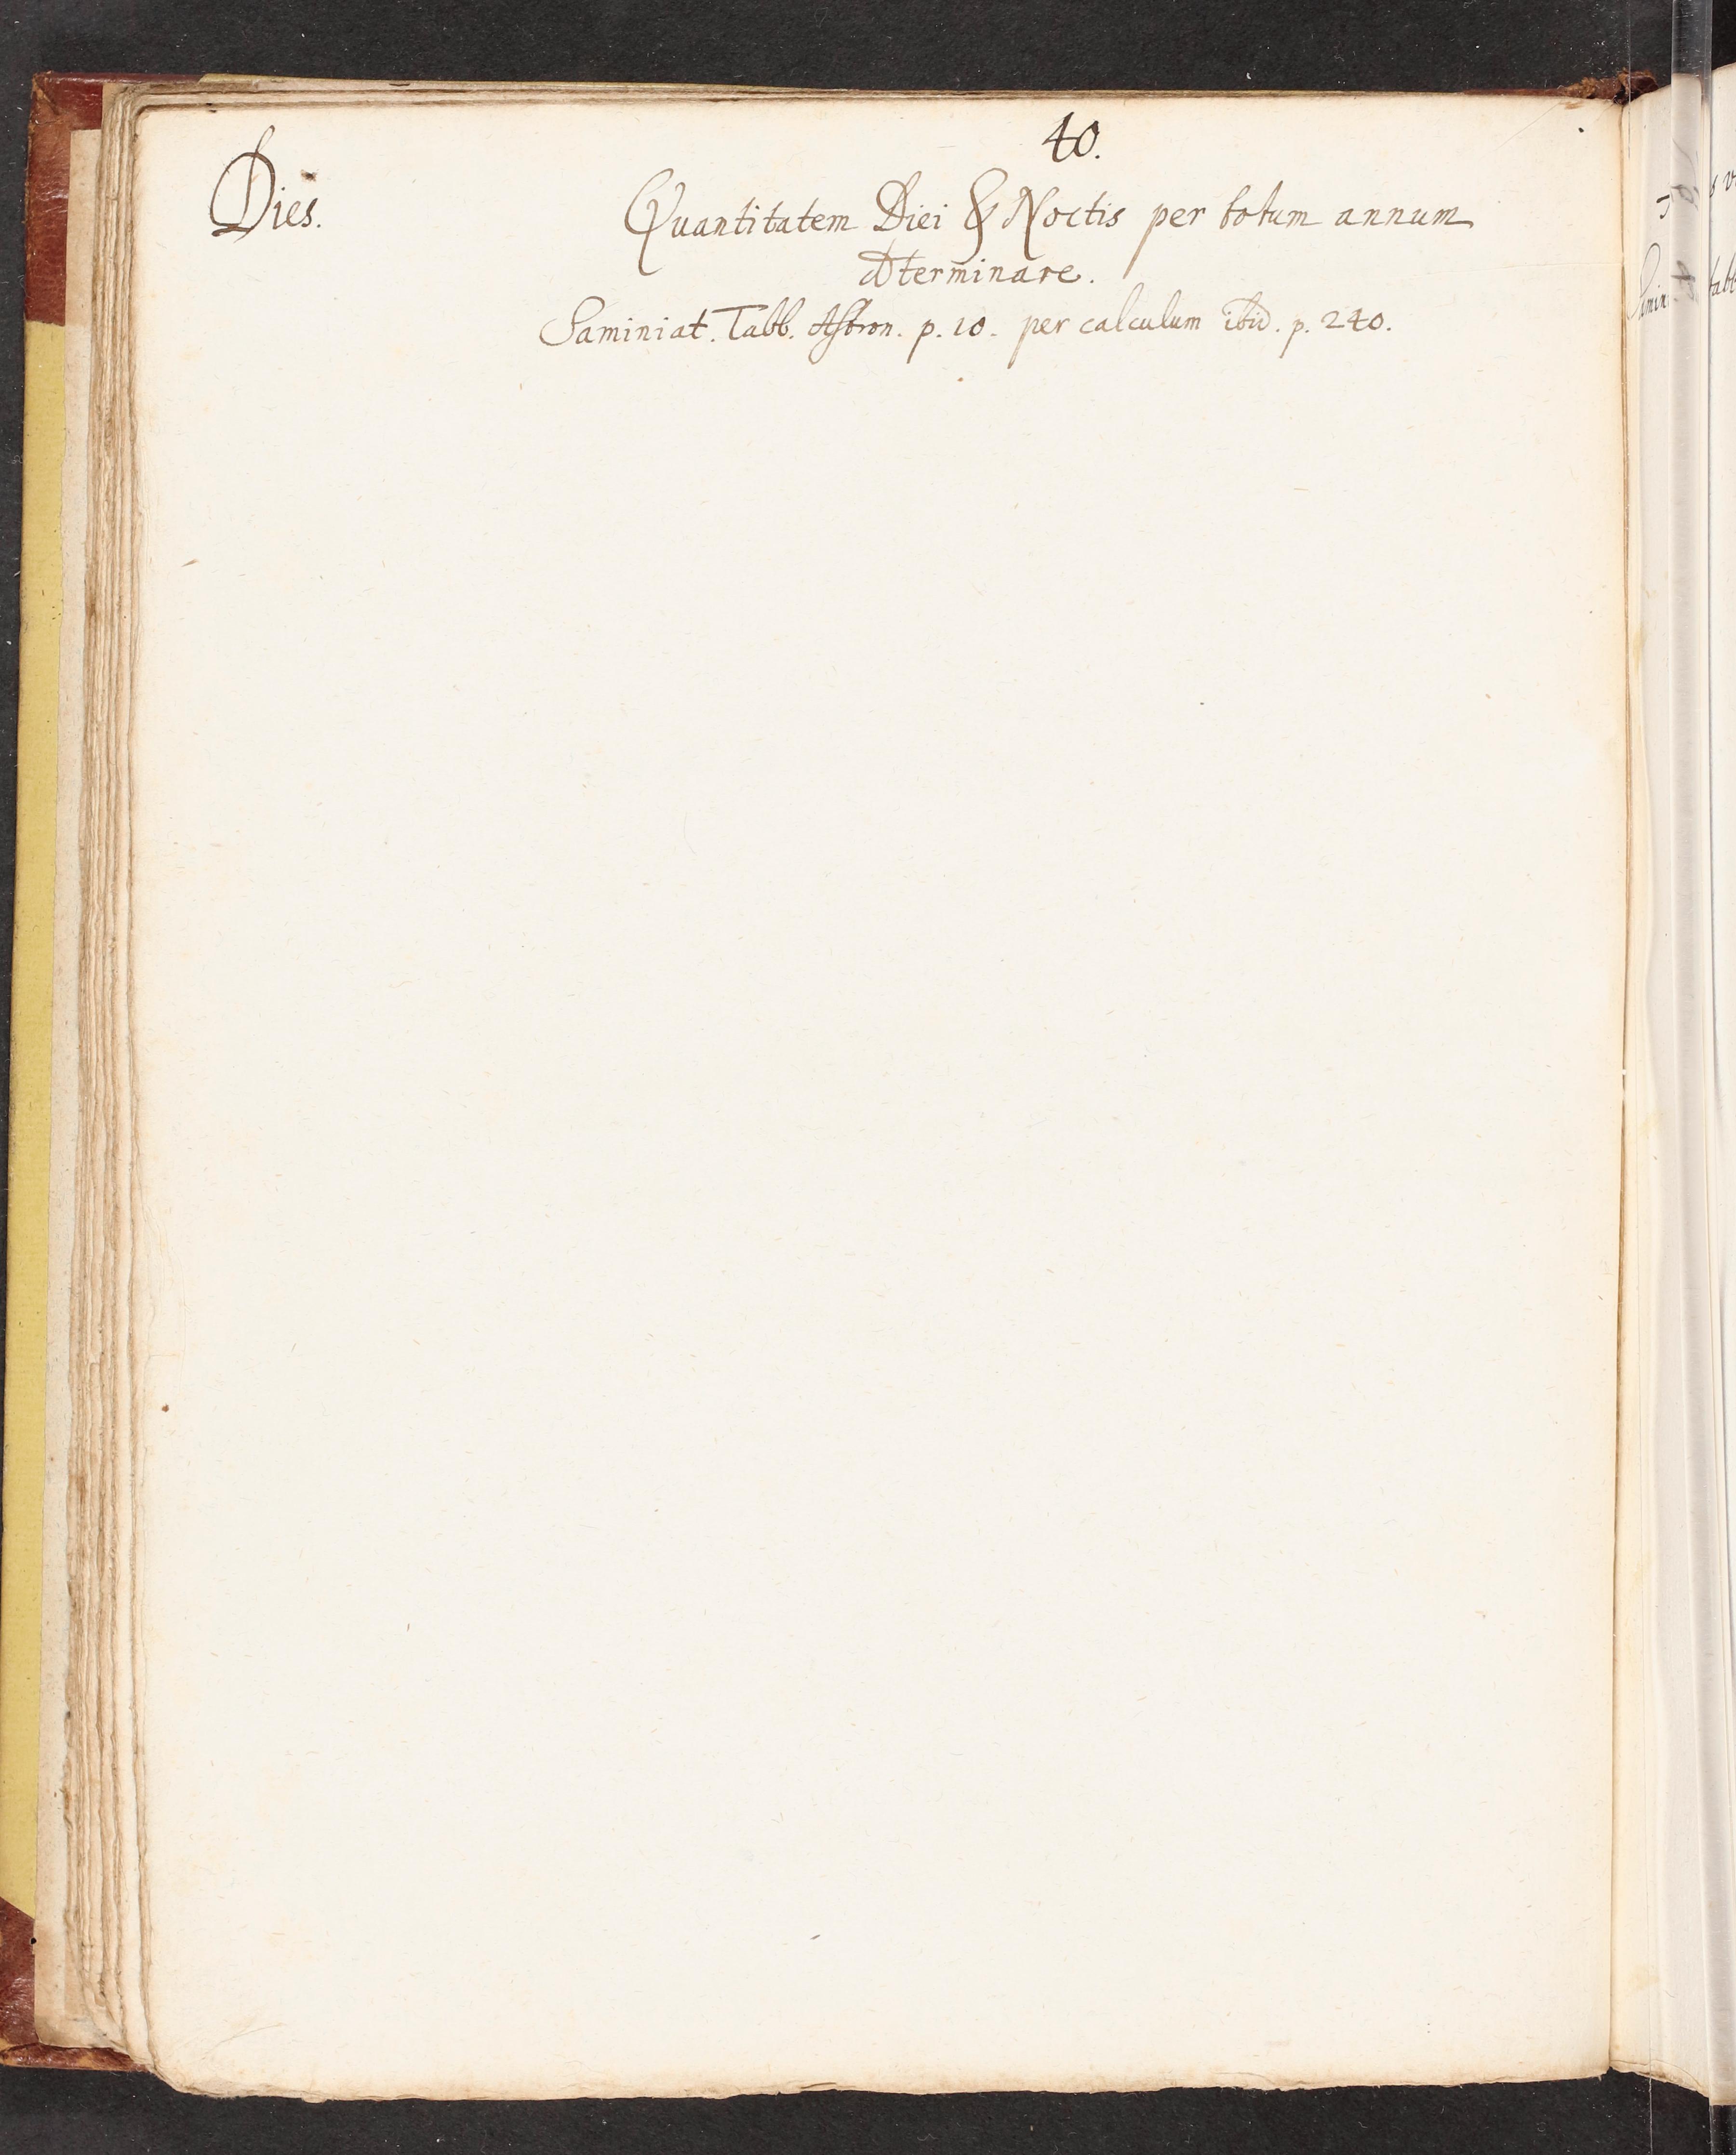 40.
Dies.
Quantitatem Diei & Noctis per totum annum
determinare.
Saminiat. Tabb. Astron. p. 10. per calculum ibid. p. 240.